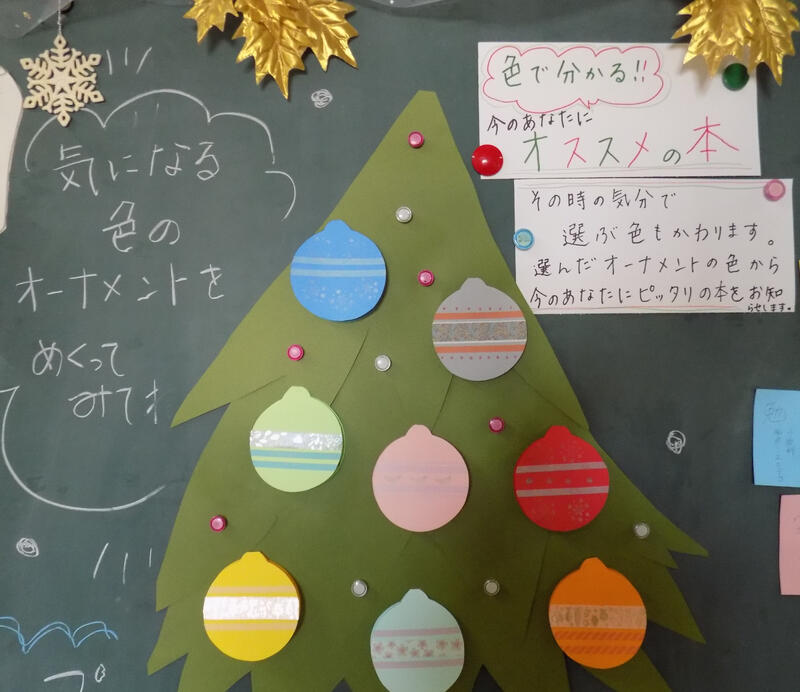 気になる
色の
オーナメントを
めくって
みてネ
色で分かる!!
今のあなたに
オススメの本
その時の気分で
選ぶ色もかわります。
選んだオーナメントの色から
今のあなたにピッタリの本をお知
らせします。